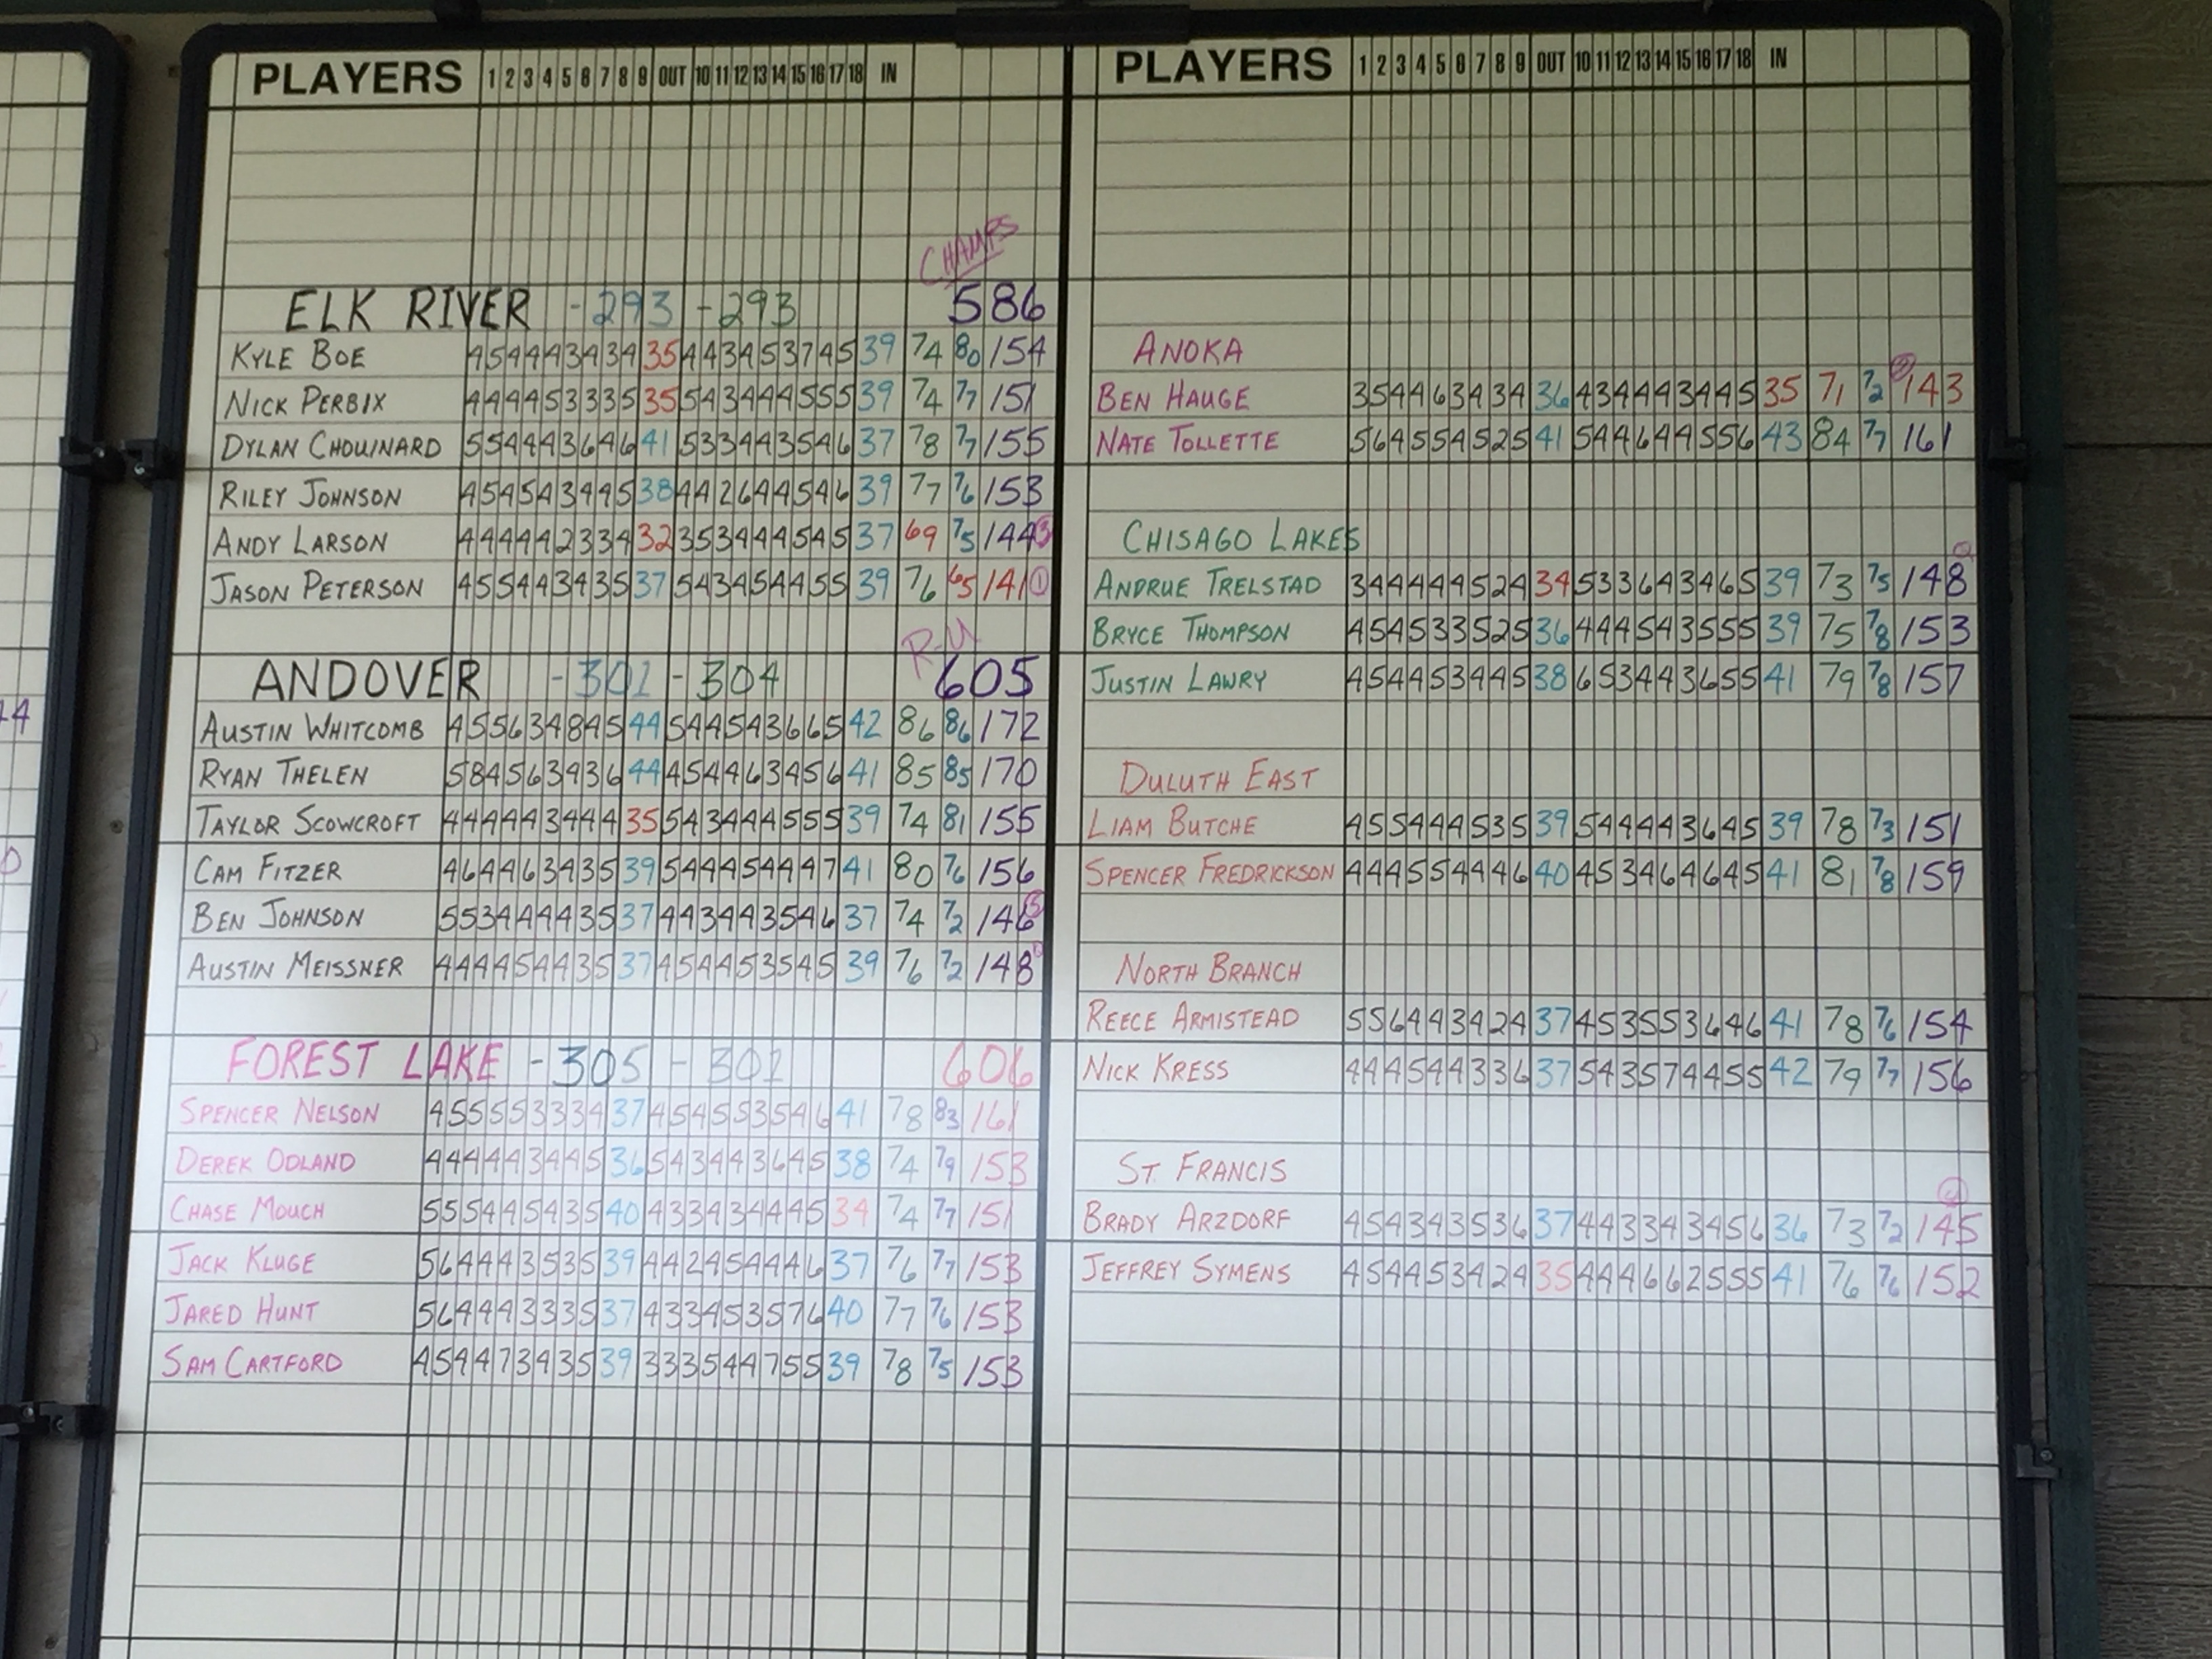 PLAYERS 1 2 3 4 5 6 7 8 9 OUT 10 11 12 13 14 15 16 17 18 IN
CHAMPS
ELK RIVER -293 -293 586
KYLE BOE 4 5 4 4 4 3 4 3 4 35 4 4 3 4 5 3 7 4 5 39 74 80 154
NICK PERBIX 4 4 4 4 5 3 3 3 5 35 5 4 3 4 4 4 5 5 5 39 74 77 151
DYLAN CHOUINARD 5 5 4 4 4 3 6 4 6 41 5 3 3 4 4 3 5 4 6 37 78 77 155
RILEY JOHNSON 4 5 4 5 4 3 4 4 5 38 4 4 2 6 4 4 5 4 6 39 77 76 153
ANDY LARSON 4 4 4 4 4 2 3 3 4 32 3 5 3 4 4 4 5 4 5 37 69 75 144 3
JASON PETERSON 4 5 5 4 4 3 4 3 5 37 5 4 3 4 5 4 4 5 5 39 76 65 141 1
R-U
ANDOVER -301 -304 605
AUSTIN WHITCOMB 4 5 5 6 3 4 8 4 5 44 5 4 4 5 4 3 6 6 5 42 86 86 172
RYAN THELEN 5 8 4 5 6 3 4 3 6 44 4 5 4 4 6 3 4 5 6 41 85 85 170
TAYLOR SCOWCROFT 4 4 4 4 4 3 4 4 4 35 5 4 3 4 4 4 5 5 5 39 74 81 155
CAM FITZER 4 6 4 4 6 3 4 3 5 39 5 4 4 4 5 4 4 4 7 41 80 76 156
BEN JOHNSON 5 5 3 4 4 4 4 3 5 37 4 4 3 4 4 3 5 4 6 37 74 72 146 5
AUSTIN MEISSNER 4 4 4 4 5 4 4 3 5 37 4 5 4 4 5 3 5 4 5 39 76 72 148
FOREST LAKE -305 -301 606
SPENCER NELSON 4 5 5 5 5 3 3 3 4 37 4 5 4 5 5 3 5 4 6 41 78 83 161
DEREK ODLAND 4 4 4 4 4 3 4 4 5 36 5 4 3 4 4 3 6 4 5 38 74 79 153
CHASE MOUCH 5 5 5 4 4 5 4 3 5 40 4 3 3 4 3 4 4 4 5 34 74 77 151
JACK KLUGE 5 6 4 4 4 3 5 3 5 39 4 4 2 4 5 4 4 4 6 37 76 77 153
JARED HUNT 5 6 4 4 4 3 3 3 5 37 4 3 3 4 5 3 5 7 6 40 77 76 153
SAM CARTFORD 4 5 4 4 7 3 4 3 5 39 3 3 3 5 4 4 7 5 5 39 78 75 153
PLAYERS 1 2 3 4 5 6 7 8 9 OUT 10 11 12 13 14 15 16 17 18 IN
ANOKA
BEN HAUGE 3 5 4 4 6 3 4 3 4 36 4 3 4 4 4 3 4 4 5 35 71 72 143
NATE TOLLETTE 5 6 4 5 5 4 5 2 5 41 5 4 4 6 4 4 5 5 6 43 84 77 161
CHISAGO LAKES
ANDRUE TRELSTAD 3 4 4 4 4 4 5 2 4 34 5 3 3 6 4 3 4 6 5 39 73 75 148
BRYCE THOMPSON 4 5 4 5 3 3 5 2 5 36 4 4 4 5 4 3 5 5 5 39 75 78 153
JUSTIN LAWRY 4 5 4 4 5 3 4 4 5 38 6 5 3 4 4 3 6 5 5 41 79 78 157
DULUTH EAST
LIAM BUTCHE 4 5 5 4 4 4 5 3 5 39 5 4 4 4 4 3 6 4 5 39 78 73 151
SPENCER FREDRICKSON 4 4 4 5 5 4 4 4 6 40 4 5 3 4 6 4 6 4 5 41 81 78 159
NORTH BRANCH
REECE ARMISTEAD 5 5 6 4 4 3 4 2 4 37 4 5 3 5 5 3 6 4 6 41 78 76 154
NICK KRESS 4 4 4 5 4 4 3 3 6 37 5 4 3 5 7 4 4 5 5 42 79 77 156
ST. FRANCIS
BRADY ARZDORF 4 5 4 3 4 3 5 3 6 37 4 4 3 3 4 3 4 5 6 36 73 72 145 4
JEFFREY SYMENS 4 5 4 4 5 3 4 2 4 35 4 4 4 6 6 2 5 5 5 41 76 76 152